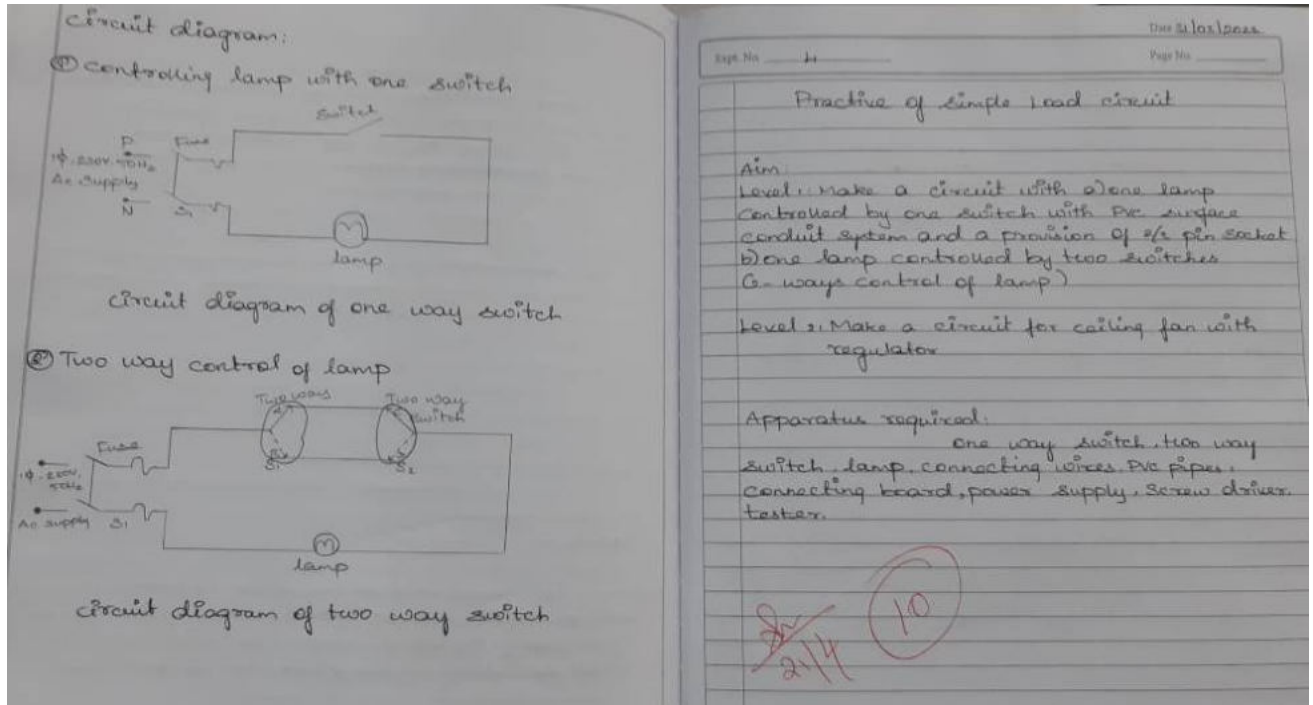 circuit diagram:
① controlling lamp with one switch
switch
P
Fuse
1φ, 230V, 50Hz
Ac Supply
N
S1
lamp
circuit diagram of one way switch
② Two way control of lamp
Two way
Two way
switch
Fuse
S1
S2
1φ, 230V,
50Hz
Ac supply
S1
lamp
circuit diagram of two way switch
Date
Expt. No.
Page No.
Practive of simple Load circuit
Aim
Level 1, Make a circuit with a) one lamp
controlled by one switch with Pvc surface
conduit system and a provision of 2/2 pin socket
b) one lamp controlled by two switches
(2-ways control of lamp)
Level 2, Make a circuit for ceiling fan with
regulator
Apparatus required:
one way switch, two way
switch, lamp, connecting wires, Pvc pipes,
connecting board, power supply, screw driver,
tester.
10
21/4